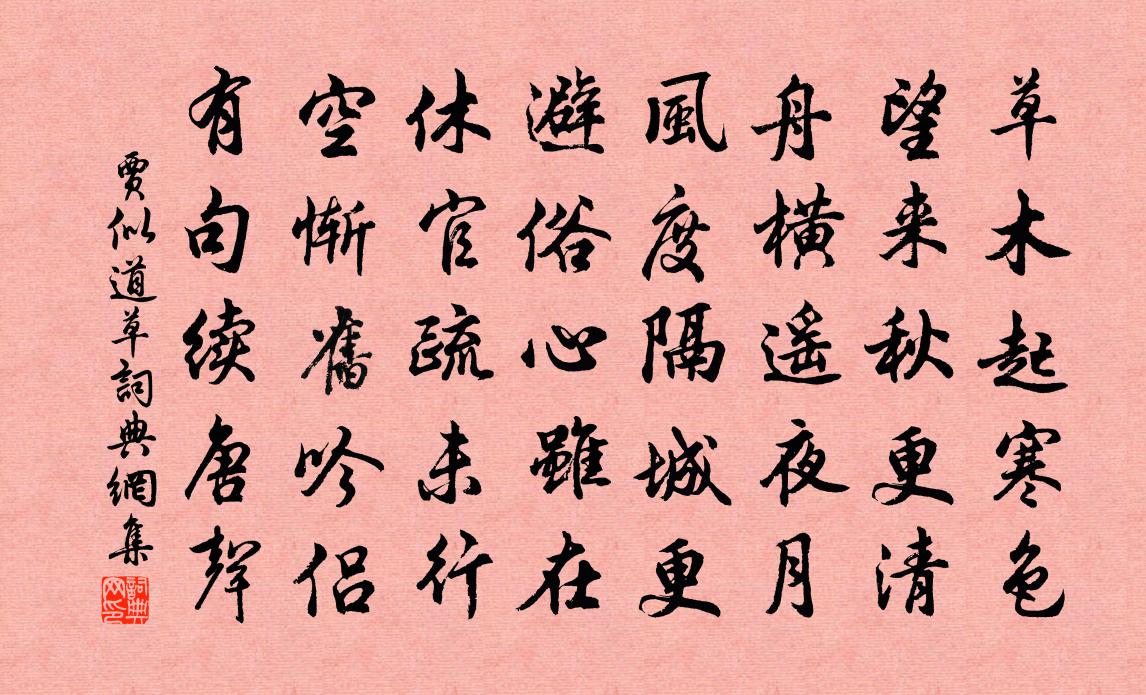 草木起寒色
望来秋更清
舟橫遥夜月
風度隔城更
避俗心雖在
休官疏未行
空慚舊吟侣
有句續唐聲
賈似道草詞典網集
詞典网印